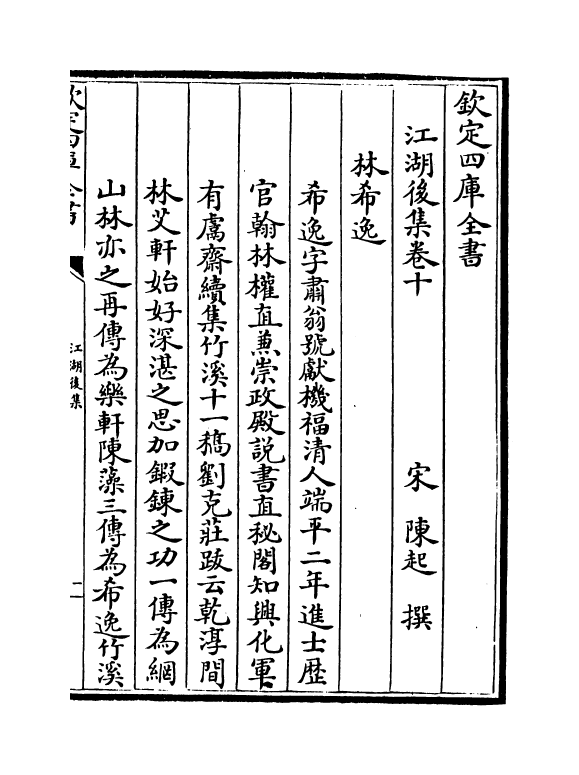 欽定四庫全書
江湖後集卷十
宋 陳起 撰
林希逸
希逸字肅翁號獻機福清人端平二年進士歴
官翰林權直兼崇政殿説書直秘閣知興化軍
有鬳齋續集竹溪十一稿劉克莊跋云乾淳間
林艾軒始好深湛之思加鍜錬之功一傳為網
山林亦之再傳為樂軒陳藻三傳為希逸竹溪
欽定四庫全書
江湖後集